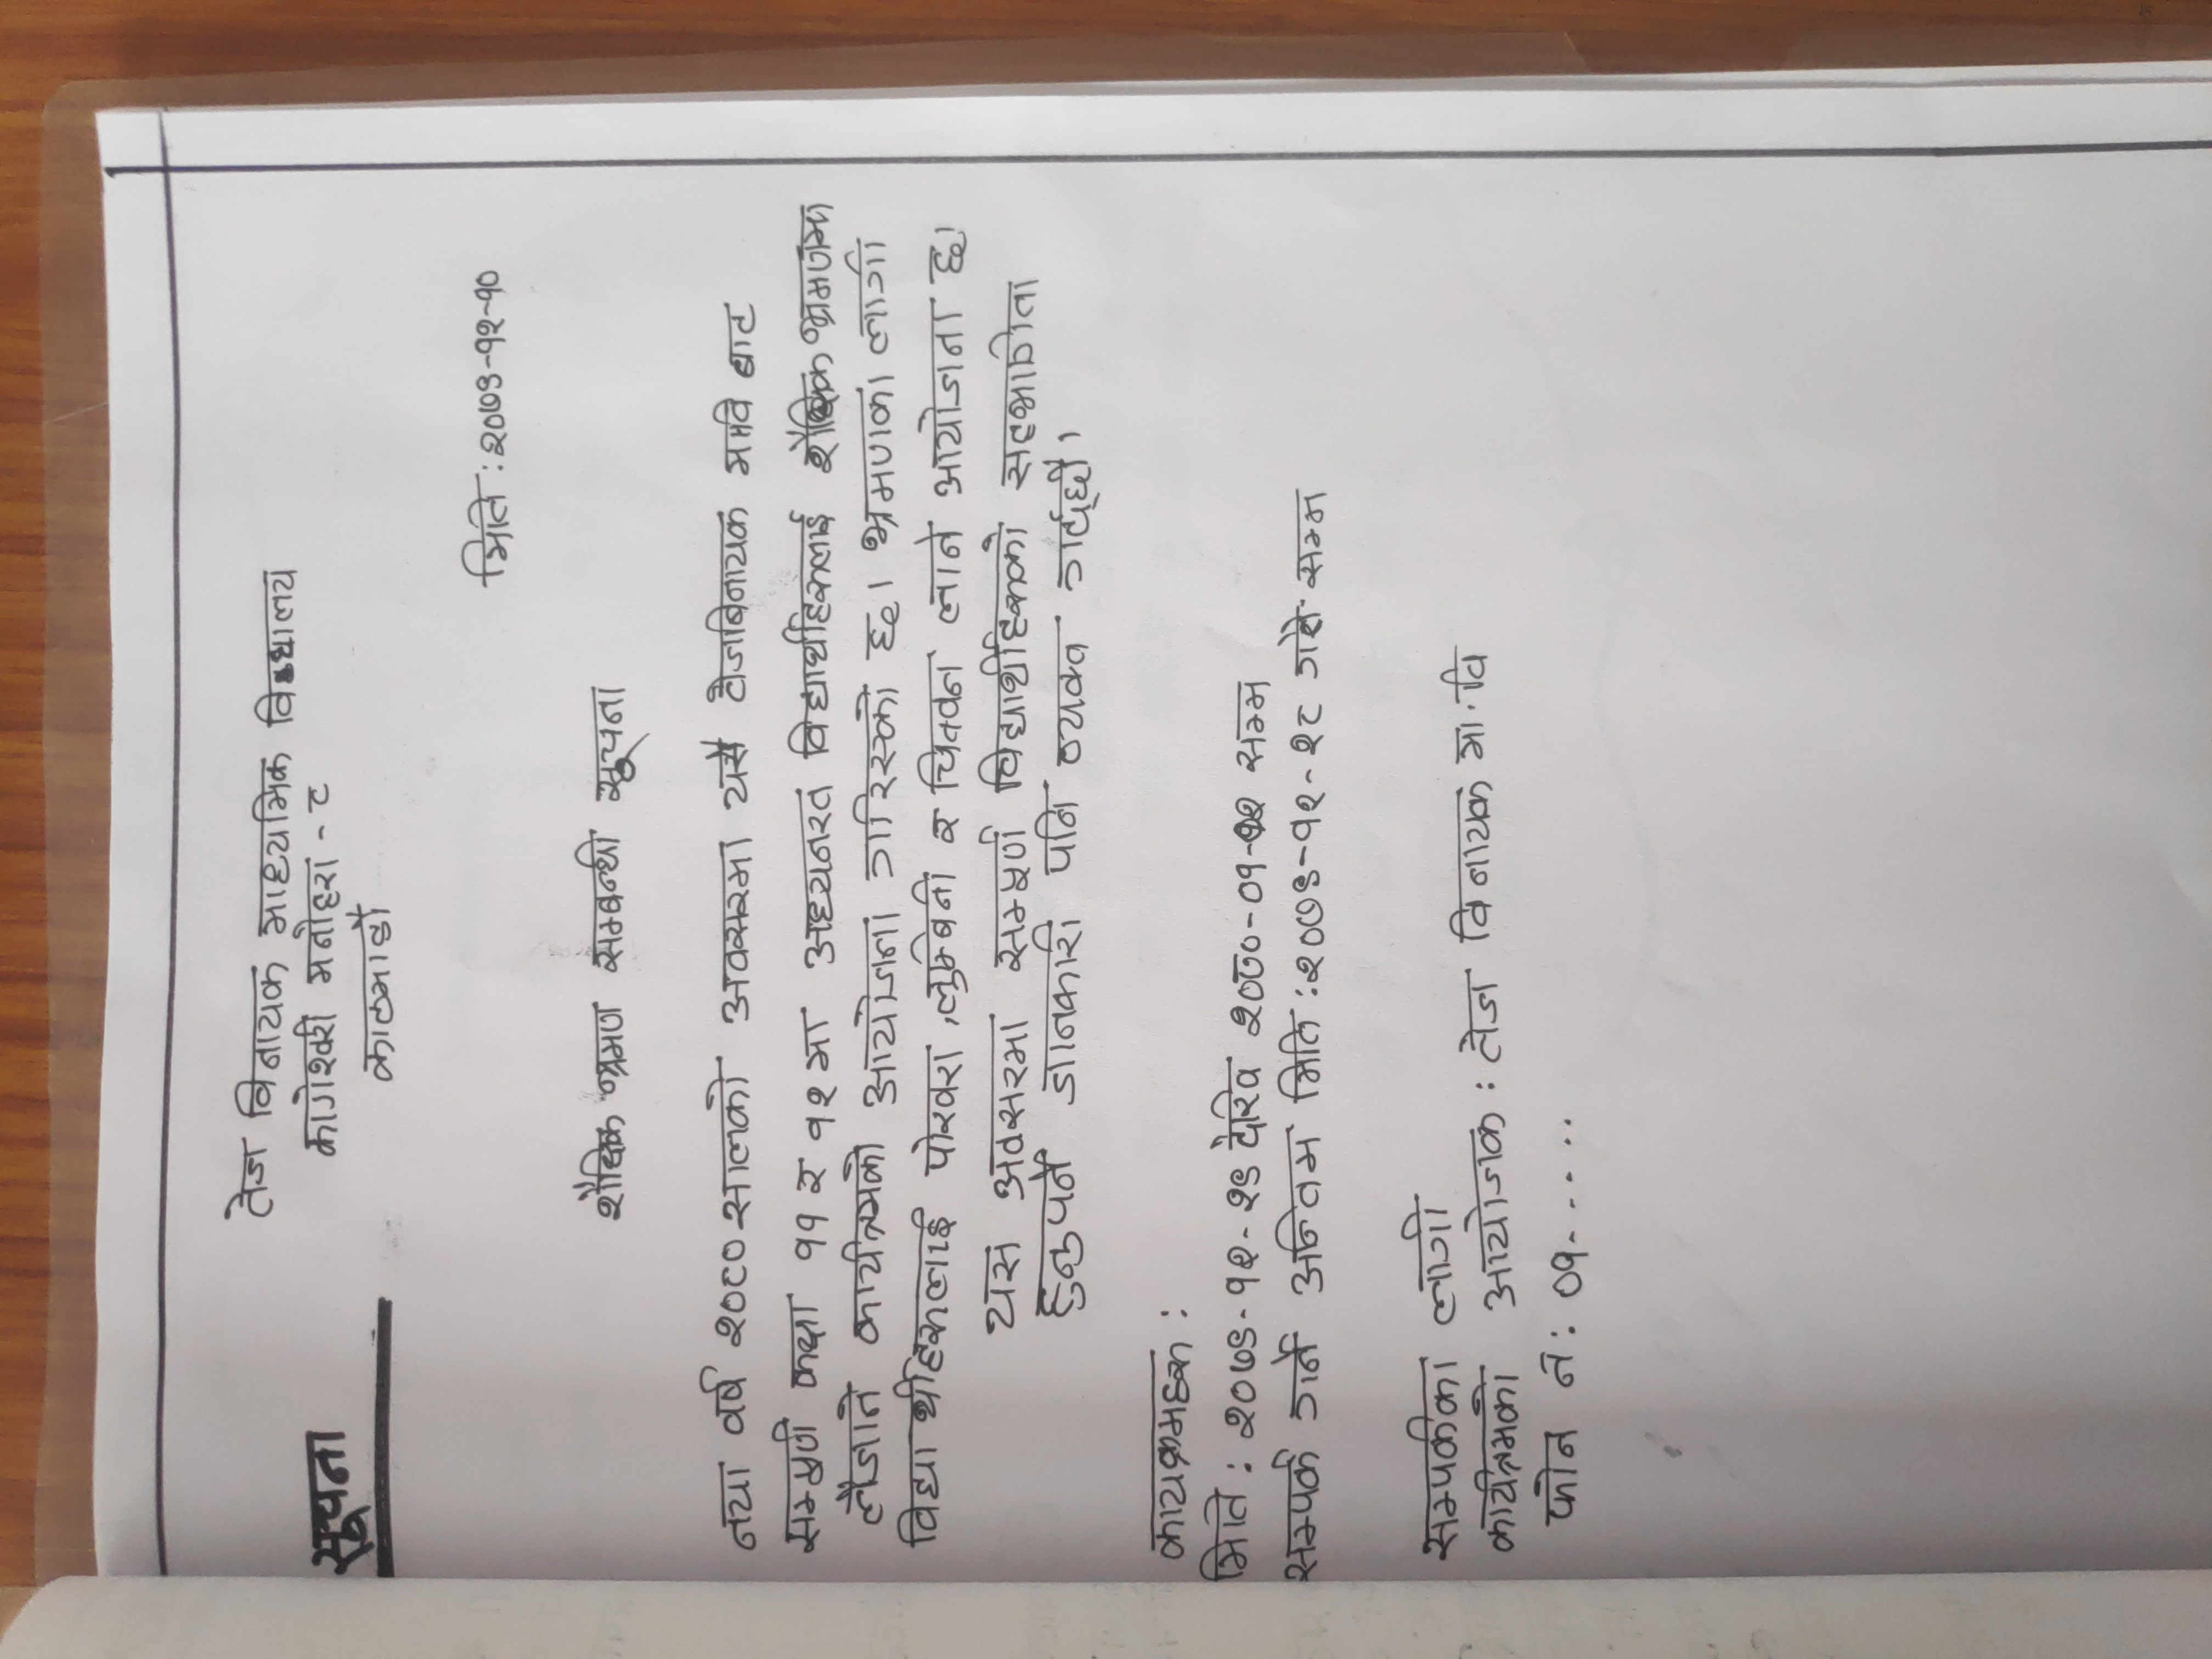 तेज विनायक माध्यमिक विद्यालय
सूचना
कागेश्वरी मनोहरा - ८
काठमाडौ
मिति : २०७९-१२-१०
शैक्षिक भ्रमण सम्बन्धी सूचना
नया वर्ष २०८० सालको अवसरमा यसै तेजबिनायक मावि बाट
सम्पूर्ण कक्षा ११ र १२ मा अध्यनरत विद्यार्थीहरुलाई शैक्षिक भ्रमणमा
लैजाने कार्यक्रमको आयोजना गरिएको छ। भ्रमणका लागी
विद्यार्थीहरुलाई पोखरा ,लुम्बिनी र चितवन लाने आयोजना छ।
यस अवसरमा सम्पूर्ण विद्यार्थीहरुको सहभागीता
हुनुपर्ने जानकारी पनि व्यक्त गर्दछौ।
कायक्रमहरु :
मिति : २०७९-१२-२९ देखि २०८०-०१-०२ सम्म
सम्पर्क गर्ने अन्तिम मिति :२०७९-१२-२८ गते सम्म
सम्पर्कका लागी
कार्यक्रमको आयोजक : तेज विनायक मा.वि
फोन नं : ०१-....